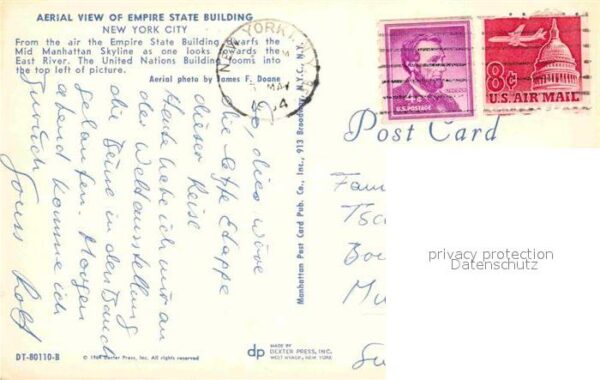 AERIAL VIEW OF EMPIRE STATE BUILDING
NEW YORK CITY
From the air the Empire State Building dwarfs the
Mid Manhattan Skyline as one looks towards the
East River. The United Nations Building looms into
the top left of picture.
Aerial photo by James F. Doane
NEW YORK
MAY
4¢
U.S. POSTAGE
8¢
U.S. AIR MAIL
Post Card
So, dies wäre
die letzte Etappe
dieser Reise
Heute habe ich mir an
der Weltausstellung
die Beine in den Bauch
gelaufen. Morgen
abend komme ich
zurück
Gruss Rolf
Manhattan Post Card Pub. Co., Inc., 913 Broadway, N.Y.C., N.Y.
Fam
Tsc
Mu
privacy protection
Datenschutz
DT-80110-B
© 1964 Dexter Press, Inc. All rights reserved
dp
MADE BY
DEXTER PRESS, INC.
WEST NYACK, NEW YORK